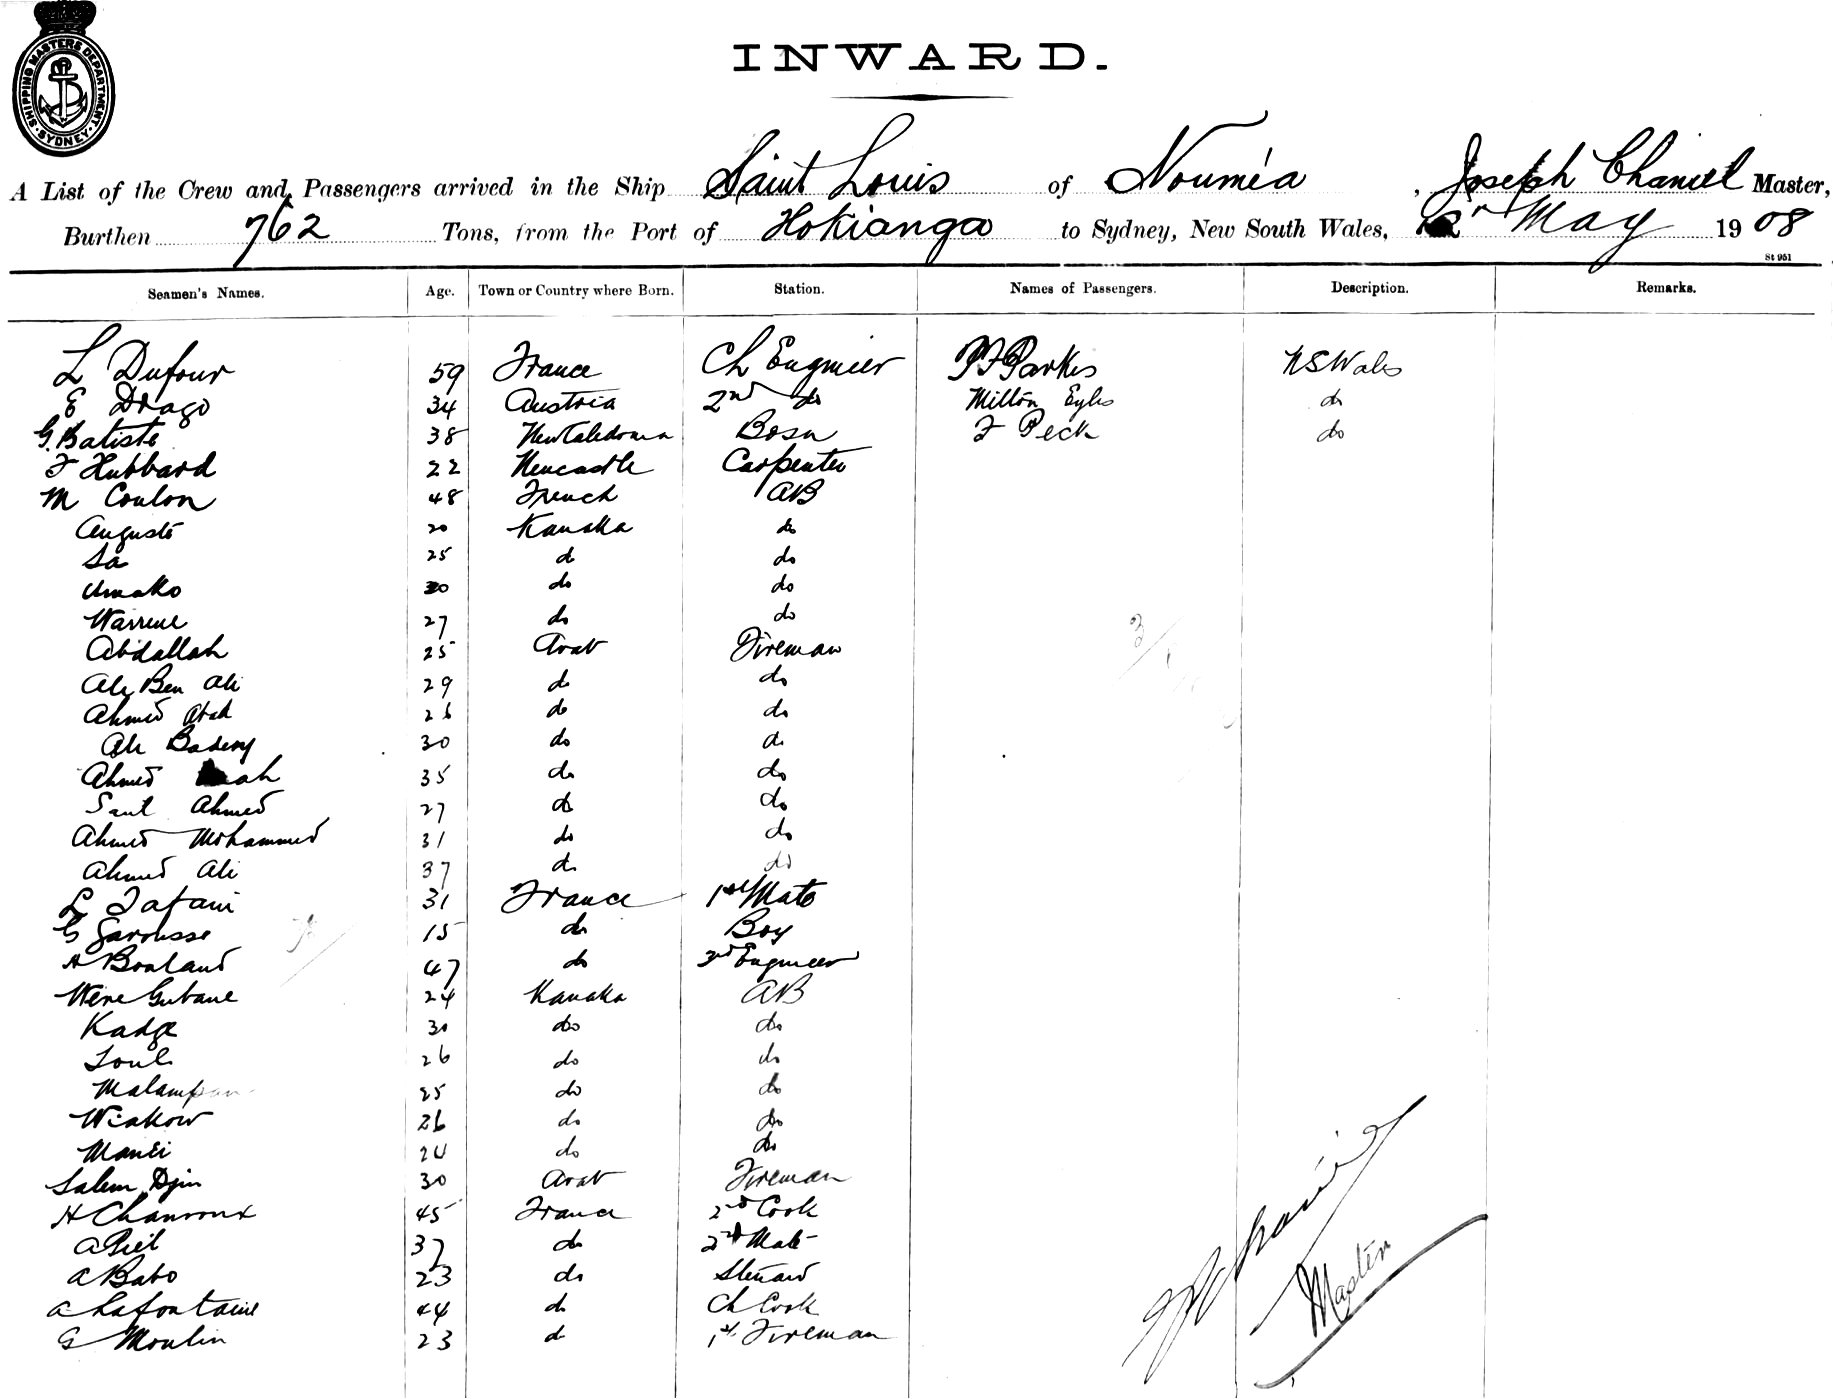 SHIPPING MASTERS DEPARTMENT · SYDNEY ·
INWARD.
A List of the Crew and Passengers arrived in the Ship Saint Louis of Nouméa, Joseph Chaniel Master,
Burthen 762 Tons, from the Port of Hokianga to Sydney, New South Wales, 2nd May 1908
St 951
Seamen's Names. Age. Town or Country where Born. Station. Names of Passengers. Description. Remarks.
L Dufour 59 France Ch Engineer Parkes NSWales
E Drago 34 Austria 2nd do Milton Eyles do
G. Batiste 38 New Caledonia Bosn F Peck do
F Hubbard 22 Newcastle Carpenter
M Coulon 48 French AB
Auguste 20 Kanaka do
Sa 25 do do
Umako 30 do do
Warrene 27 do do
Abdallah 25 Arab Fireman
Ali Ben Ali 29 do do
Ahmed 26 do do
Ali 30 do do
Ahmed 35 do do
Ahmed 27 do do
Ahmed Mohammed 31 do do
Ahmed Ali 37 do do
L Tafani 31 France 1st Mate
G Garousse 15 do Boy
H 47 do 3rd Engineer
24 Kanaka AB
30 do do
26 do do
25 do do
Wiakow 26 do do
24 do do
Salem Djin 30 Arab Fireman
H Chanroux 45 France 2nd Cook
A Piel 37 do 2nd Mate
A Babo 23 do Steward
A Lafontaine 44 do Ch Cook
G Moulin 23 do 1st Fireman
Master